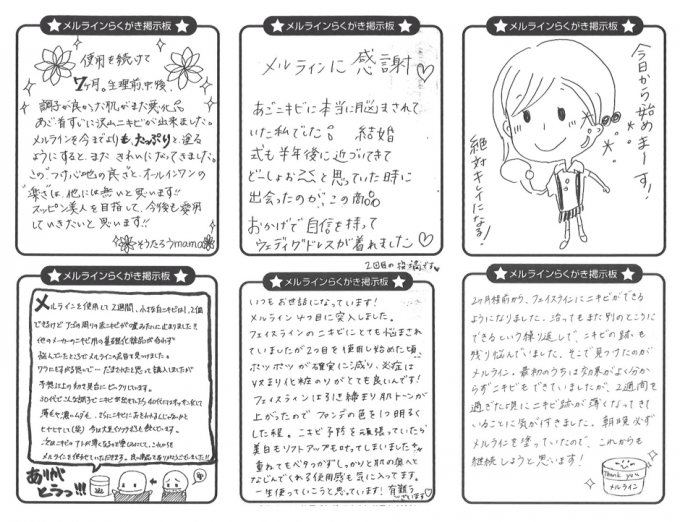 メルラインらくがき掲示板
使用を続けて
7ヶ月。生理前、中、後、
調子が良かった肌がまた悪化し
あご首すじに沢山ニキビが出来ました。
メルラインを今までよりも、たっぷりと塗る
ようにすると、また きれいになってきました。
このつけ心地の良さと、オールインワンの
"楽さ"は、他には無いと思います!!
スッピン美人を目指して、今後も愛用
していきたいと思います!!
そうたろうmama
メルラインらくがき掲示板
メルラインに 感謝♡
あごニキビに本当に悩まされて
いた私でした。 結婚
式も半年後に近づいてきて
どーしよおこと思っていた時に
出会ったのが、この商品
おかげで自信を持って
ウェディグドレスが着れました♡
2回目の投稿です♡
メルラインらくがき掲示板
今日から始めまーす!
絶対キレイになる!
メルラインらくがき掲示板
メルラインを使用して2週間、小さな白ニキビは1、2個
できるけど アゴの周りの赤ニキビが噓みたいに止まりました!!
他のメーカーのニキビ用の基礎化粧品が合わず
悩んでいたところで メルラインの広告を見つけました。
ワラにもすがる思いで… だまされたと思って購入しましたが
予想以上の効き具合にビックリしています。
次はニキビのアトが薄くなるのを楽しみにして、これからも
メルラインを使わせていただきます。良い商品をありがとうございました!!
ありがとうっ!!!
メルラインらくがき掲示板
いつもお世話になっています!
メルライン4つ目に突入しました。
フェイスラインのニキビにとても悩まされ
ていましたが2つ目を使用し始めた頃、
ポツポツが確実に減り、炎症は
おさまり化粧のりがとても良いんです!
フェイスラインは引き締まり肌トーンが
上がったので ファンデの色を1つ明るく
した程。ニキビ予防を頑張っていたら
美白もリフトアップも叶ってしまいました✨
重ねてもベタつかずしっかりと肌の奥へと
なじんでくれる使用感も気に入ってます。
一生使っていこうと思っています! 有難うございます♡
メルラインらくがき掲示板
2ヶ月程前から、フェイスラインにニキビができる
ようになりました。治ってもまた別のところに
できるという繰り返しで、ニキビの跡も
残り悩んでいました。そこで見つけたのが
メルライン。最初のうちは効果がよく分か
らずニキビもできていましたが、2週間を
過ぎた頃にニキビ跡が薄くなってきて
いることに気が付きました。朝晩必ず
メルラインを塗っていたので、これからも
継続しようと思います!
Thank you
メルライン